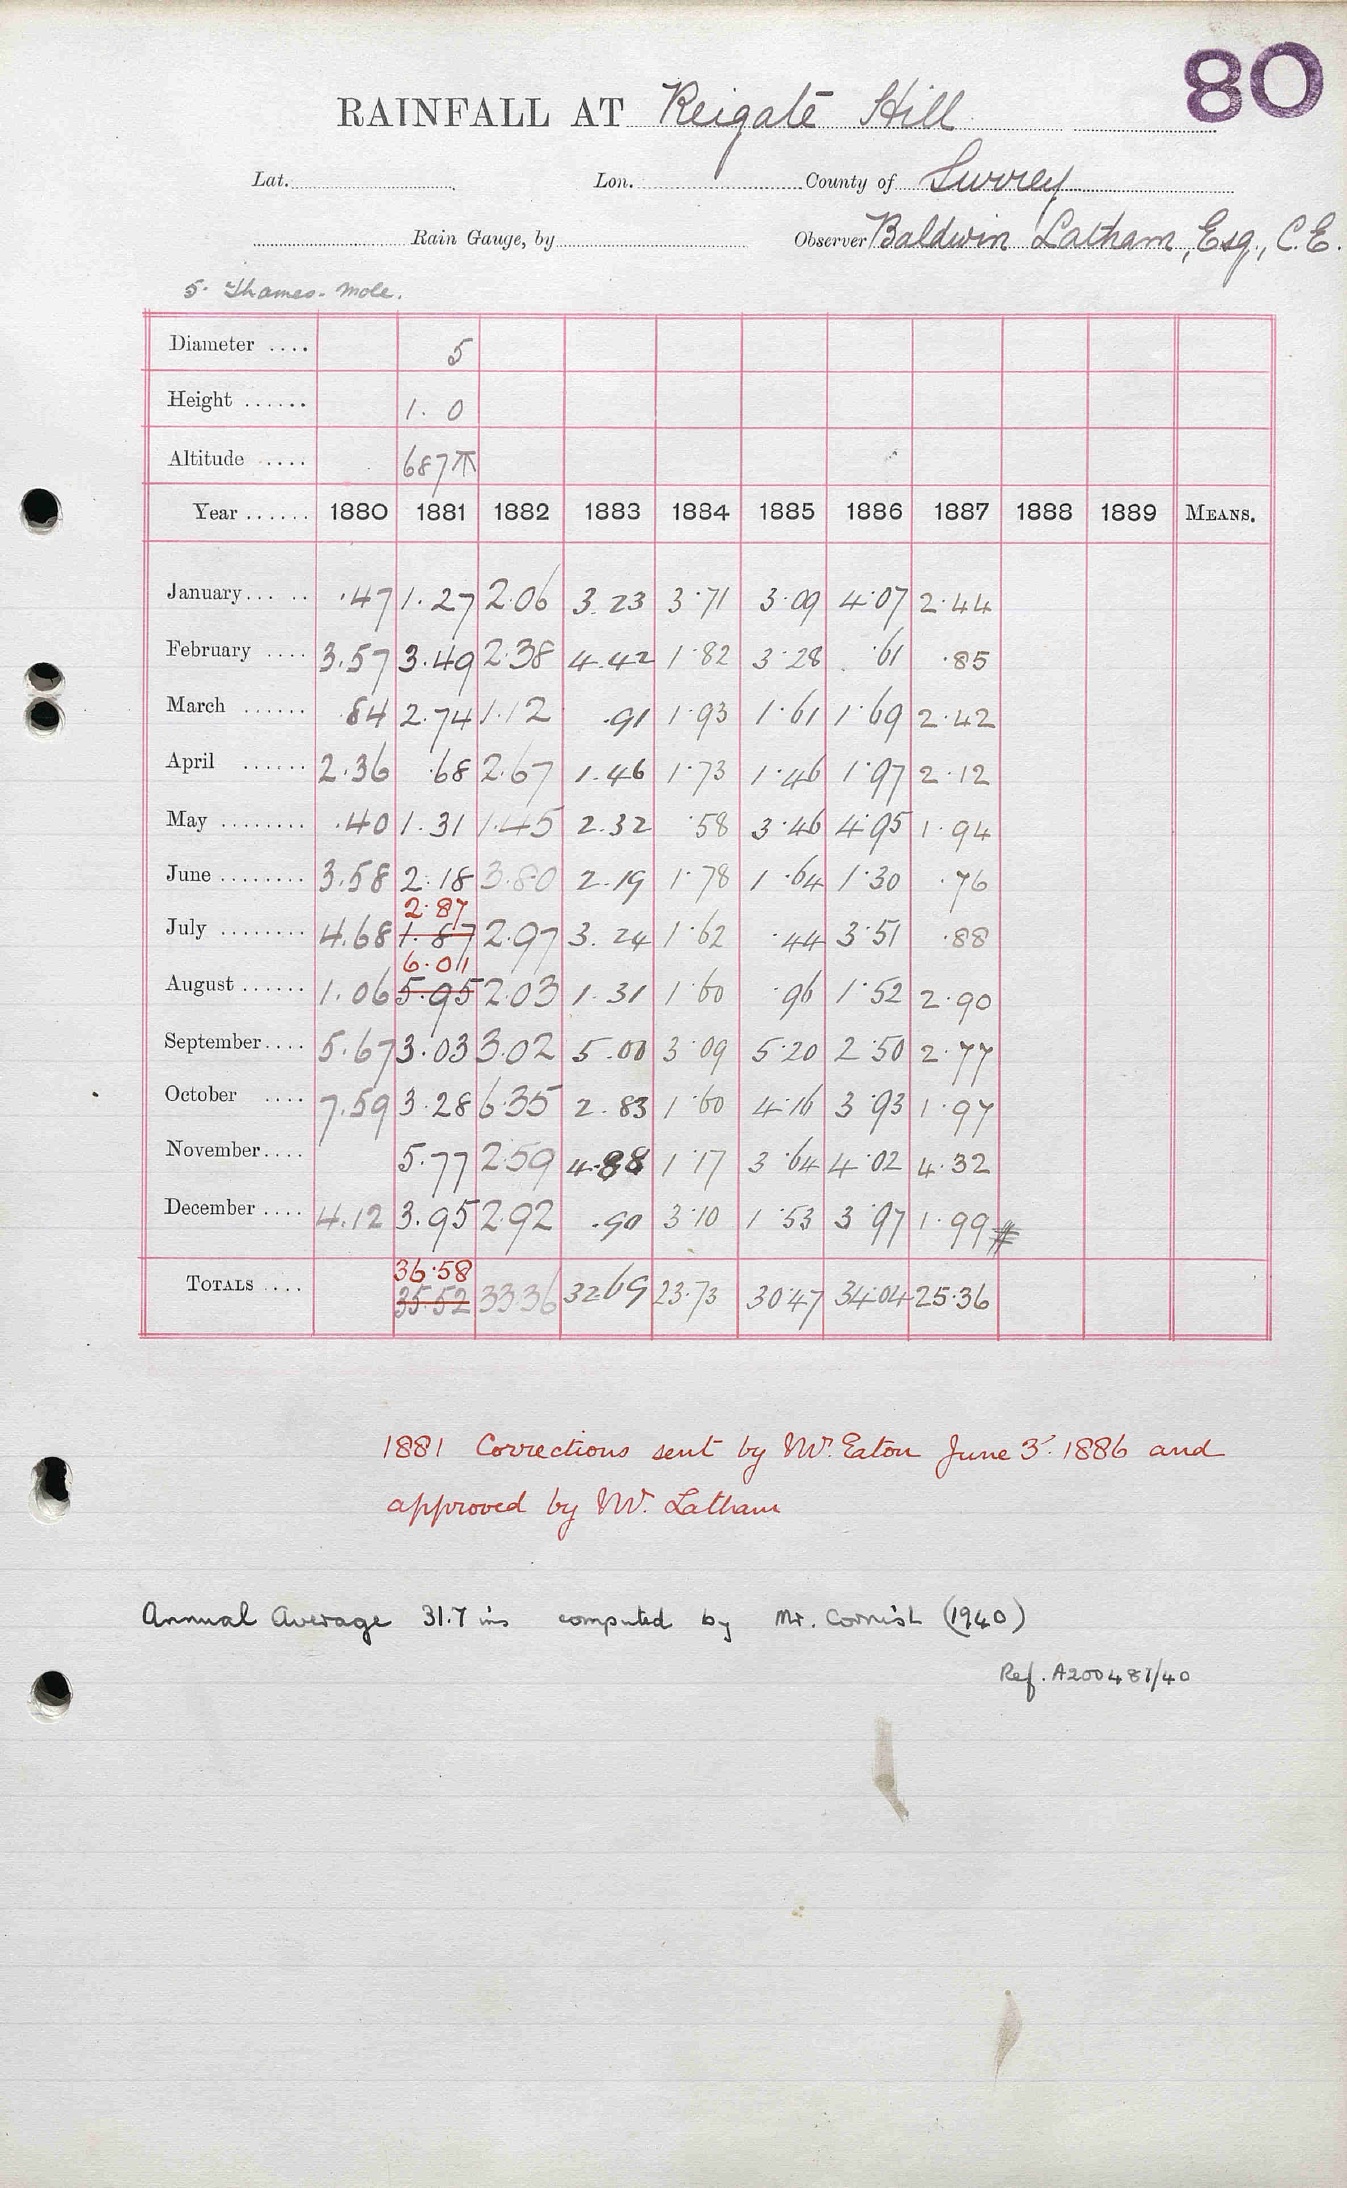 80
RAINFALL AT Reigate Hill
Lat. Lon. County of Surrey
Rain Gauge, by Observer Baldwin Latham, Esq., C.E.
5. Thames-Mole.
Diameter .... 5
Height ...... 1. 0
Altitude .... 687
Year ...... 1880 1881 1882 1883 1884 1885 1886 1887 1888 1889 MEANS.
January ... .. .47 1.27 2.06 3.23 3.71 3.09 4.07 2.44
February .... 3.57 3.49 2.38 4.42 1.82 3.28 .61 .85
March ...... .84 2.74 1.12 .91 1.93 1.61 1.69 2.42
April ...... 2.36 .68 2.67 1.46 1.73 1.46 1.97 2.12
May ........ .40 1.31 1.45 2.32 .58 3.46 4.95 1.94
June ........ 3.58 2.18 3.80 2.19 1.78 1.64 1.30 .76
2.87
July ........ 4.68 1.87 2.97 3.24 1.62 .44 3.51 .88
6.01
August ...... 1.06 5.95 2.03 1.31 1.60 .96 1.52 2.90
September .... 5.67 3.03 3.02 5.00 3.09 5.20 2.50 2.77
October .... 7.59 3.28 6.35 2.83 1.60 4.16 3.93 1.97
November .... 5.77 2.59 4.88 1.17 3.64 4.02 4.32
December .... 4.12 3.95 2.92 .90 3.10 1.53 3.97 1.99 #
36.58
TOTALS .... 35.52 33.36 32.69 23.73 30.47 34.04 25.36
1881 Corrections sent by Mr. Eaton June 3. 1886 and
approved by Mr. Latham
Annual Average 31.7 ins computed by Mr. Cornish (1940)
Ref. A200481/40